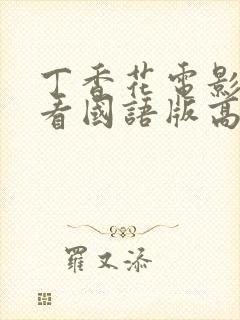 丁香花電影
看國語版高
羅又添